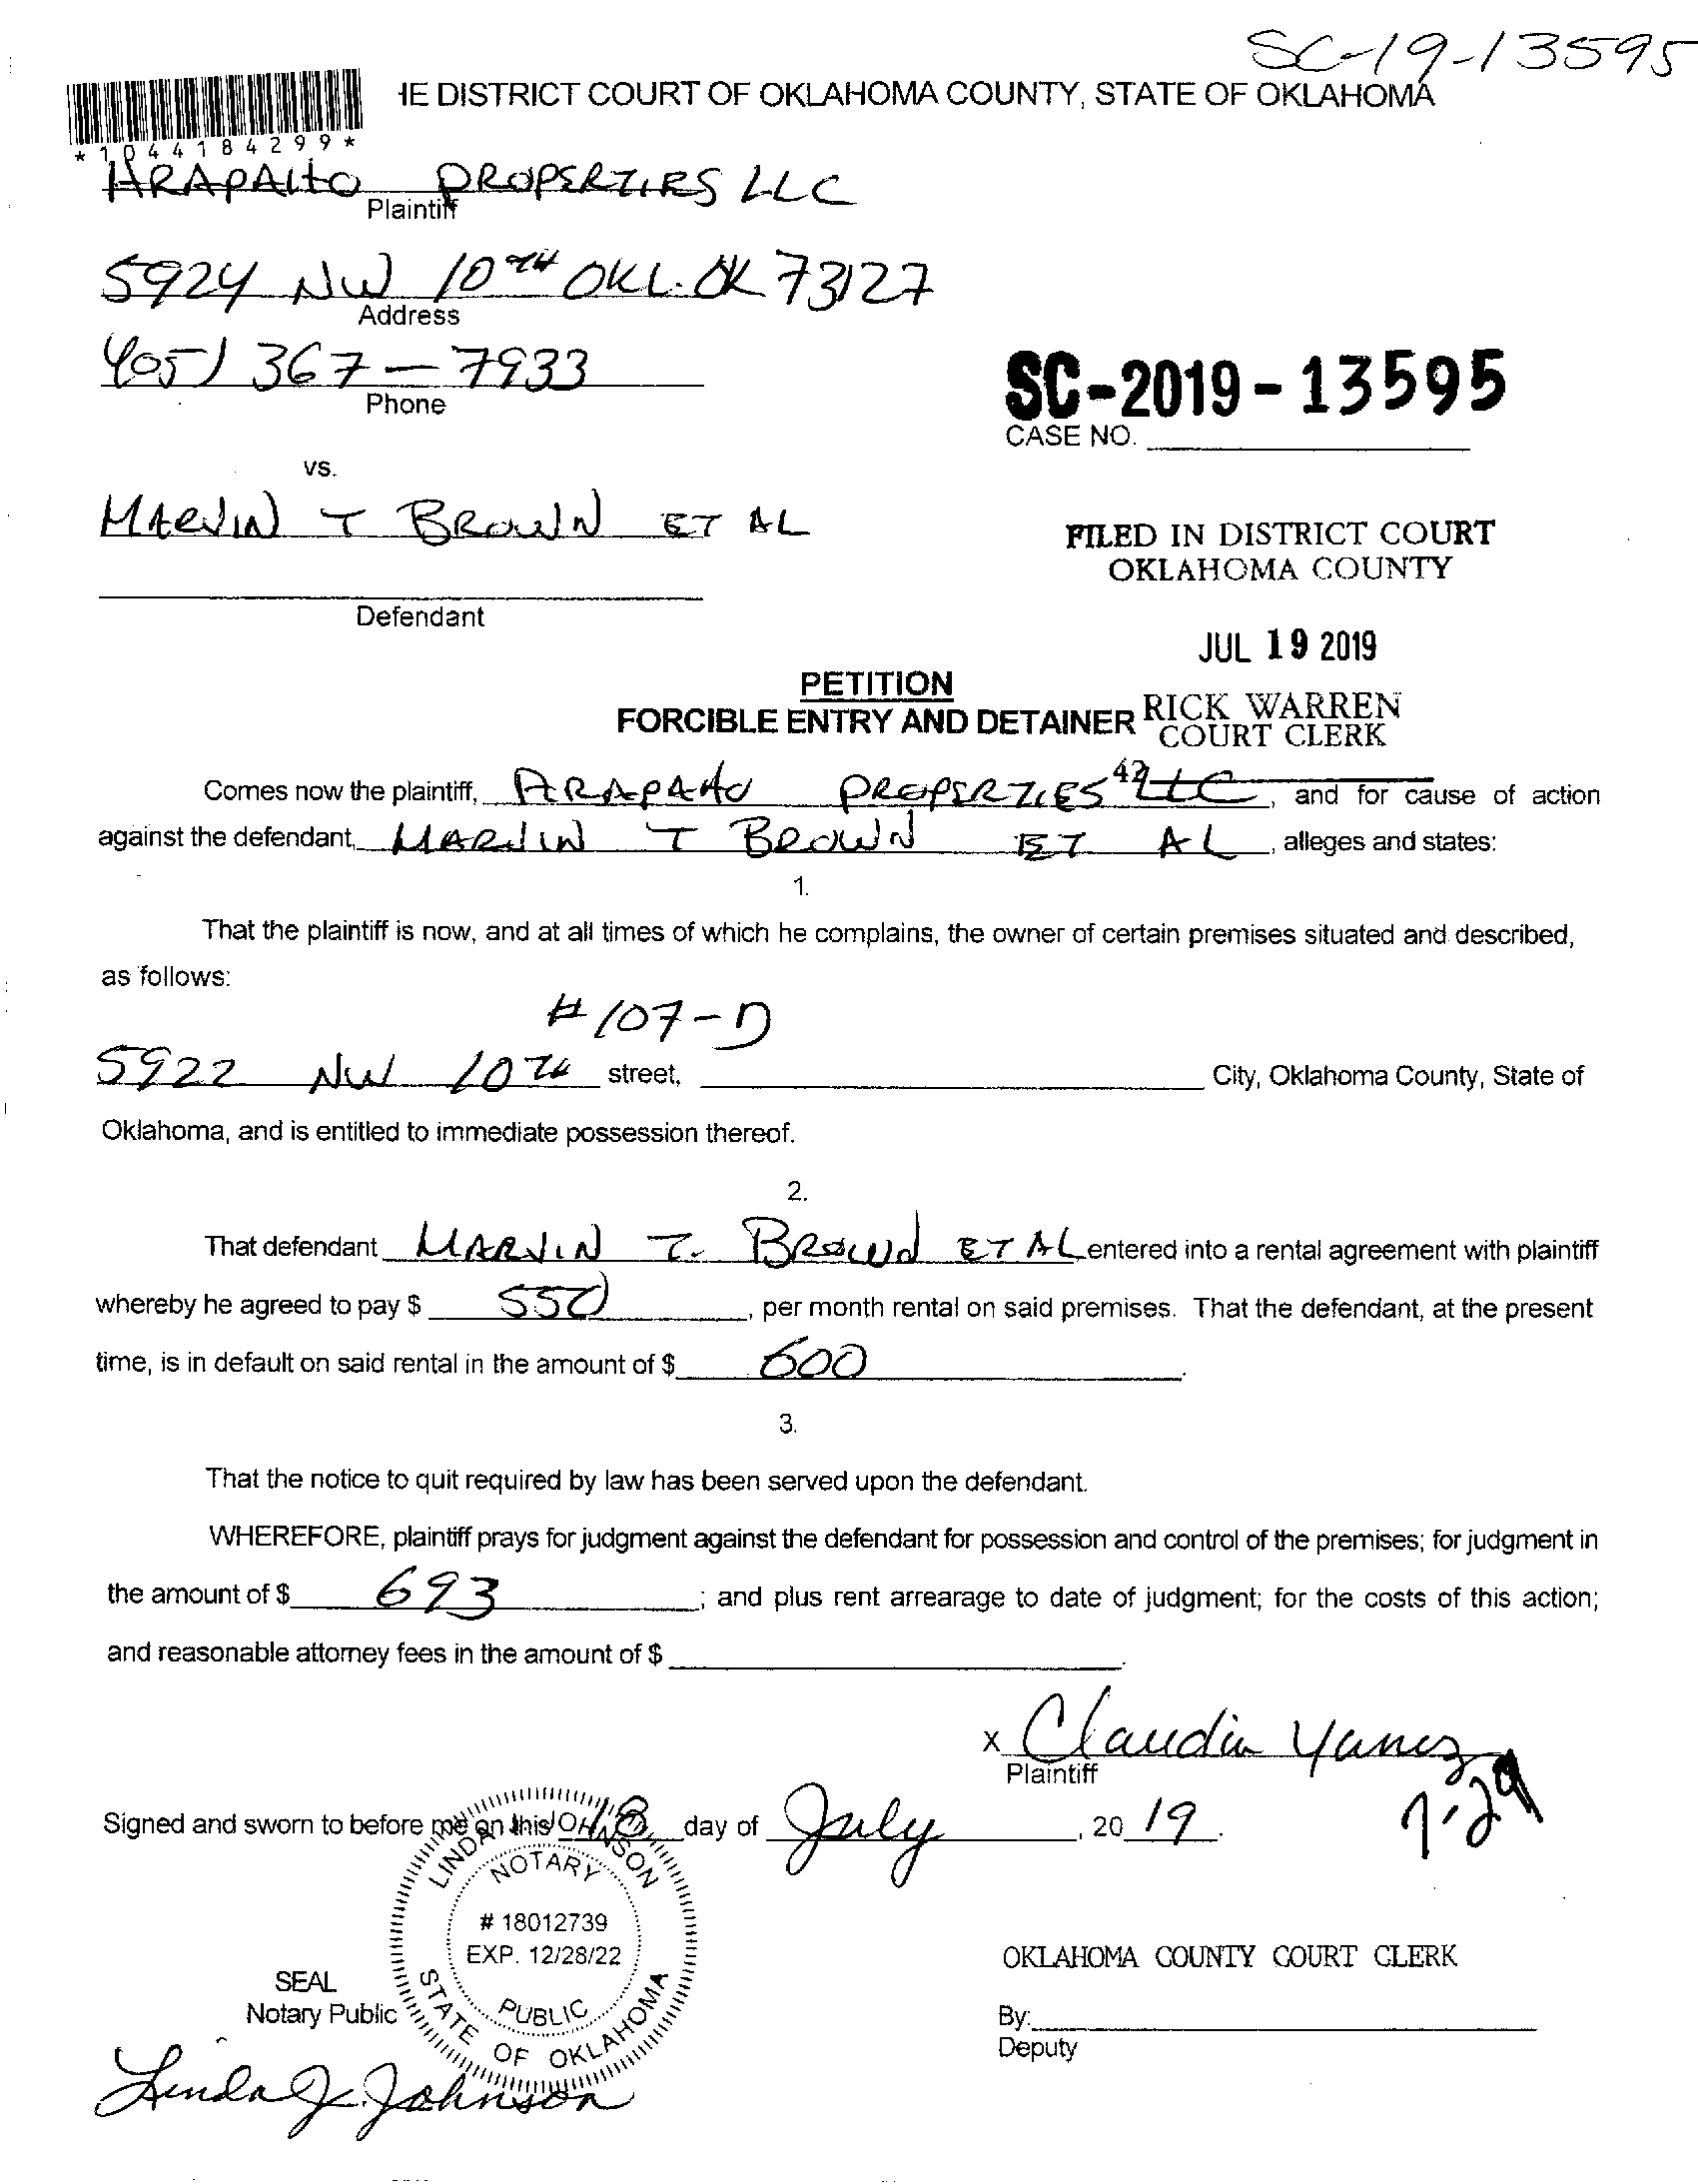 SC-19-13595
HE DISTRICT COURT OF OKLAHOMA COUNTY, STATE OF OKLAHOMA
*1044184299*
ARAPAHO PROPERTIES LLC
Plaintiff
5924 NW 10TH OKL. OK 73127
Address
405) 367-7933
Phone
SC-2019-13595
CASE NO.
vs.
MARVIN T BROWN ET AL
FILED IN DISTRICT COURT
OKLAHOMA COUNTY
Defendant
JUL 19 2019
PETITION
FORCIBLE ENTRY AND DETAINER
RICK WARREN
COURT CLERK
42
Comes now the plaintiff, ARAPAHO PROPERTIES LLC, and for cause of action
against the defendant, MARVIN T BROWN ET AL, alleges and states:
1.
That the plaintiff is now, and at all times of which he complains, the owner of certain premises situated and described,
as follows:
#107-D
5922 NW 10TH street, City, Oklahoma County, State of
Oklahoma, and is entitled to immediate possession thereof.
2.
That defendant MARVIN T. BROWN ET AL entered into a rental agreement with plaintiff
whereby he agreed to pay $ 550, per month rental on said premises. That the defendant, at the present
time, is in default on said rental in the amount of $ 600.
3.
That the notice to quit required by law has been served upon the defendant.
WHEREFORE, plaintiff prays for judgment against the defendant for possession and control of the premises; for judgment in
the amount of $ 693; and plus rent arrearage to date of judgment; for the costs of this action;
and reasonable attorney fees in the amount of $.
x Claudia Yanez
Plaintiff
7-29
Signed and sworn to before me on this 18 day of July, 2019.
LINDA JOHNSON
NOTARY
# 18012739
EXP. 12/28/22
PUBLIC
STATE OF OKLAHOMA
OKLAHOMA COUNTY COURT CLERK
SEAL
Notary Public
By:
Deputy
Linda J. Johnson